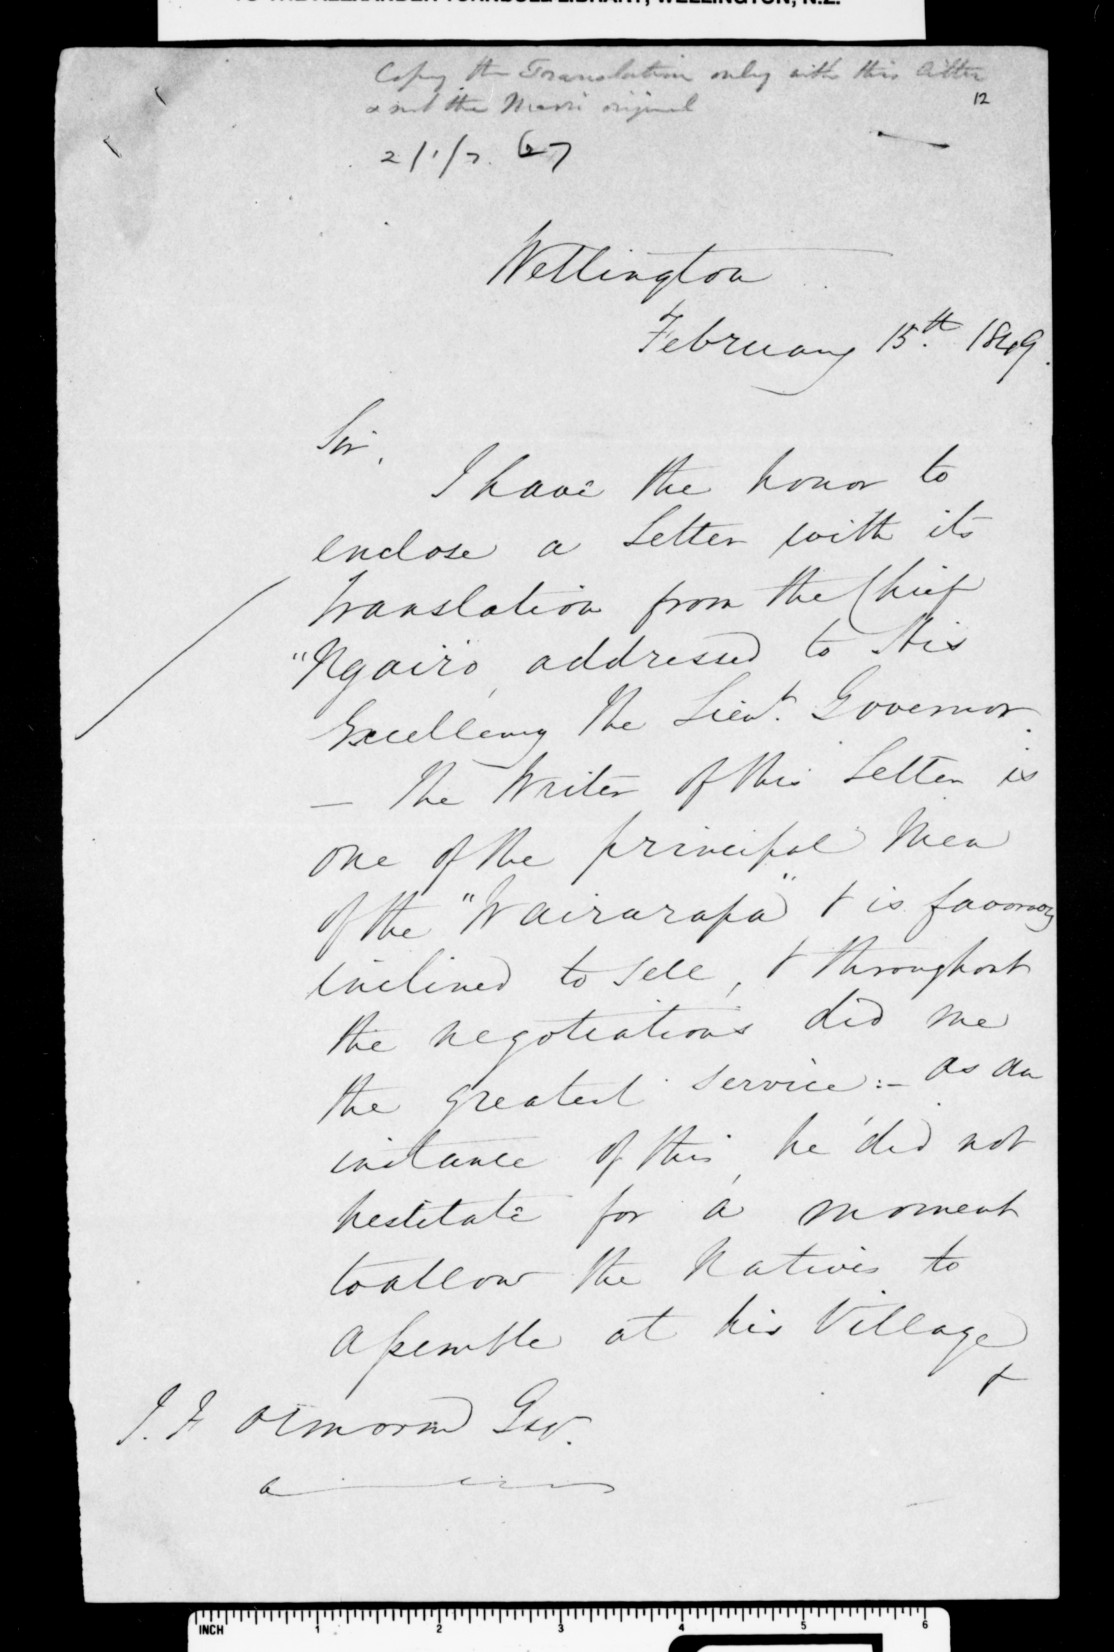 TO THE ALEXANDER TURNBULL LIBRARY, WELLINGTON, N.Z.
Copy the Translation only with this letter
& not the Maori original
12
Wellington
February 15th. 1849.
Sir,
I have the honor to
enclose a Letter with its
translation from the Chief
"Ngairo, addressed to His
Excellency the Lieut. Governor.
— The Writer of this Letter is
one of the principal Men
of the "Wairarapa" & is
inclined to sell, & throughout
the negotiations did me
the greatest service:- as an
instance of this, he did not
hestitate for a moment
to allow the Natives to
assemble at his Village
&
J. F Ormond
INCH 1 2 3 4 5 6